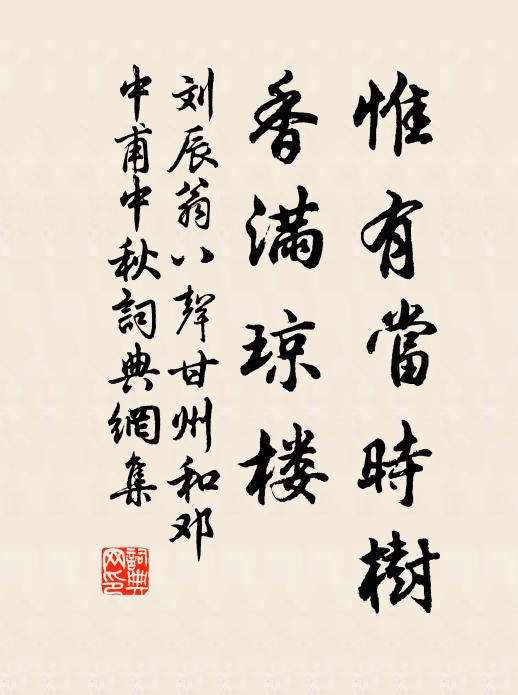 惟有當時樹
香滿琼楼
刘辰翁八聲甘州和邓
中甫中秋詞典網集
詞典网印